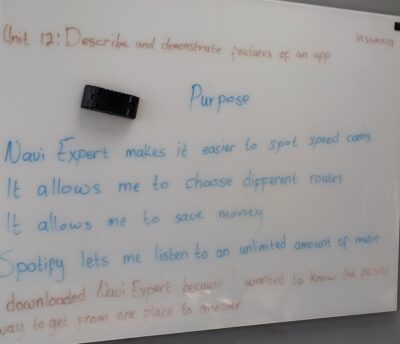 Unit 12: Describe and demonstrate features of an app
insomnia
Purpose
Navi Expert makes it easier to spot speed cams
It allows me to choose different routes
It allows me to save money
Spotify lets me listen to an unlimited amount of music
downloaded Navi Expert because I wanted to know the
way to get from one place to another